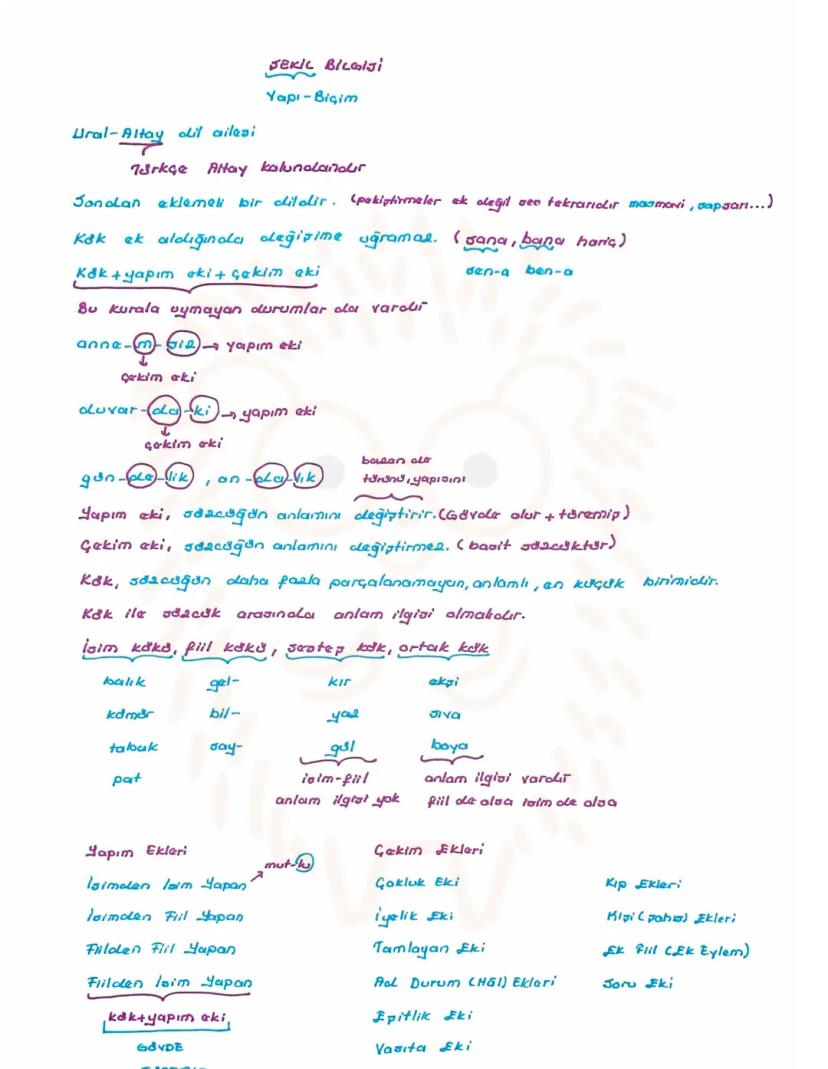 ŞEKİL BİLGİSİ
Yapı-Biçim
Ural-Altay dil ailesi
Türkçe Altay kolundandır
Sondan eklemeli bir dildir. (pekiştirmeler ek değil ses tekrarıdır masmavi, sapsarı...)
Kök ek aldığında değişime uğramaz. (sana, bana hariç)
Kök+yapım eki+çekim eki sen-a ben-a
Bu kurala uymayan durumlar da vardır
anne-m-siz → yapım eki
çekim eki
duvar-da-ki → yapım eki
çekim eki
bazen de
gün-de-lik, on-da-lık türünü, yapısını
Yapım eki, sözcüğün anlamını değiştirir. (Gövde olur + türemiş)
Çekim eki, sözcüğün anlamını değiştirmez. (basit sözcüktür)
Kök, sözcüğün daha fazla parçalanamayan, anlamlı, en küçük birimidir.
Kök ile sözcük arasında anlam ilgisi olmalıdır.
İsim kökü, fiil kökü, sesteş kök, ortak kök
balık gel- kır ekşi
kömür bil- yaz sıva
tabak say- gül boya
pat isim-fiil anlam ilgisi vardır
anlam ilgisi yok fiil de olsa isim de olsa
Yapım Ekleri Çekim Ekleri
mut-lu
İsimden İsim Yapan Çokluk Eki Kip Ekleri
İsimden Fiil Yapan İyelik Eki Kişi (şahıs) Ekleri
Fiilden Fiil Yapan Tamlayan Eki Ek Fiil (Ek Eylem)
Fiilden İsim Yapan Ad Durum (Hâl) Ekleri Soru Eki
kök+yapım eki Eşitlik Eki
GÖVDE Vasıta Eki